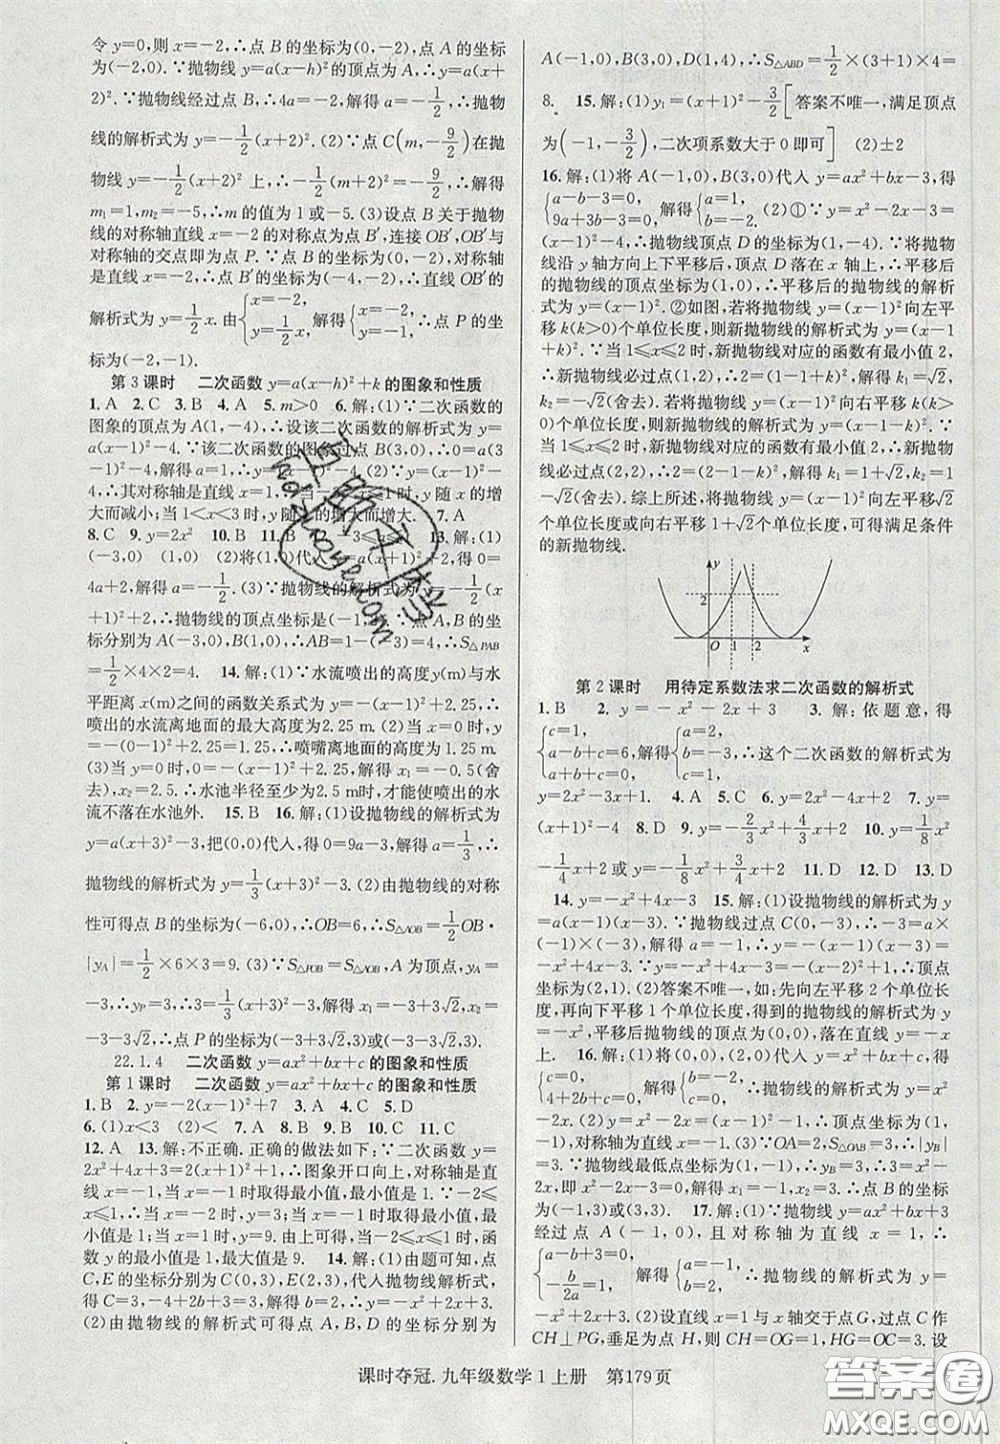 令 y=0,则 x=-2,∴点 B 的坐标为(0,-2),点 A 的坐标
为(-2,0).∵抛物线 y=a(x-h)²的顶点为 A,∴y=a(x+
2)².∵抛物线经过点 B,∴4a=-2,解得 a=-1/2,∴抛物
线的解析式为 y=-1/2(x+2)². (2)∵点 C(m,-9/2)在抛
物线 y=-1/2(x+2)² 上,∴-1/2(m+2)²=-9/2,∴解得
m₁=1,m₂=-5,∴m 的值为 1 或-5. (3)设点 B 关于抛物
线的对称轴直线 x=-2 的对称点为点 B′,连接 OB′,OB′与
对称轴的交点即为点 P.∵点 B 的坐标为(0,-2),对称轴
是直线 x=-2,∴点 B′的坐标为(-4,-2),∴直线 OB′的
解析式为 y=1/2x.由{x=-2, y=1/2x,解得{x=-2, y=-1,∴点 P 的坐
标为(-2,-1).
第 3 课时 二次函数 y=a(x-h)²+k 的图象和性质
1. A 2. C 3. B 4. A 5. m>0 6. 解:(1)∵二次函数的
图象的顶点为 A(1,-4),∴设该二次函数的解析式为 y=
a(x-1)²-4.∵该二次函数的图象过点 B(3,0),∴0=a(3
-1)²-4,解得 a=1,∴y=(x-1)²-4. (2)∵抛物线 y=(x
-1)²-4,∴其对称轴是直线 x=1,∴当 x<1 时,y 随 x 的增
大而减小;当 1<x<3 时,y 随 x 的增大而增大. 7. A
8. C 9. y=2x² 10. B 11. B 13. 解:(1)
(-3,0) (1,0) (2)将(1,0)代入,得 0=
4a+2,解得 a=-1/2. (3)∵抛物线的解析式为 y=-1/2(x
+1)²+2,∴抛物线的顶点坐标是(-1,2).∵A,B 的坐
标分别为 A(-3,0),B(1,0),∴AB=1-(-3)=4,∴S△PAB
=1/2×4×2=4. 14. 解:(1)∵水流喷出的高度 y(m)与水
平距离 x(m)之间的函数关系式为 y=-(x-1)²+2.25,∴
喷出的水流离地面的最大高度为 2.25 m. (2)当 x=0 时,y
=-(0-1)²+2.25=1.25,∴喷嘴离地面的高度为1.25 m.
(3)当 y=0 时,0=-(x-1)²+2.25,解得 x₁=-0.5(舍
去),x₂=2.5,∴水池半径至少为 2.5 m时,才能使喷出的水
流不落在水池外. 15. B 16. 解:(1)设抛物线的解析式为
y=a(x+3)²-3,把(0,0)代入,得 0=9a-3,解得 a=1/3,∴
抛物线的解析式为 y=1/3(x+3)²-3. (2)由抛物线的对称
性可得点 B 的坐标为(-6,0),∴OB=6,∴S△AOB=1/2OB·
|yA|=1/2×6×3=9. (3)∵S△POB=S△AOB,A 为顶点,yA=
-3,∴yP=3,∴3=1/3(x+3)²-3,解得 x₁=-3+3√2,x₂=
-3-3√2,∴点 P 的坐标为(-3+3√2,3)或(-3-3√2,3).
22.1.4 二次函数 y=ax²+bx+c 的图象和性质
第 1 课时 二次函数 y=ax²+bx+c 的图象和性质
1. B 2. y=-2(x-1)²+7 3. A 4. C 5. D
6. (1)x<3 (2)< 7. B 8. B 9. B 10. C 11. C
12. A 13. 解:不正确. 正确的做法如下:∵二次函数 y=
2x²+4x+3=2(x+1)²+1,∴图象开口向上,对称轴是直
线 x=-1,当 x=-1 时取得最小值,最小值为 1.∵-2≤x
≤1,∴当 x=-1 时取得最小值,最小值
是 1;当 x=1 时,取得最大值,最大值是 9. 由上可得,当-2≤x≤1 时,函
数 y 的最小值是 1,最大值是 9. 14. 解:(1)由题可知,点
C,E 的坐标分别为 C(0,3),E(2,3),代入抛物线解析式,
得 C=3,-4+2b+3=3,解得 b=2,∴y=-x²+2x+3.
(2)由抛物线的解析式可得点 A,B,D 的坐标分别为
A(-1,0),B(3,0),D(1,4),∴S△ABD=1/2×(3+1)×4=
8. 15. 解:(1)y₁=(x+1)²-3/2[答案不唯一,满足顶点
为(-1,-3/2),二次项系数大于 0 即可] (2)±2
16. 解:(1)将 A(-1,0),B(3,0)代入 y=ax²+bx-3,得
{a-b-3=0, 9a+3b-3=0,解得{a=1, b=-2. (2)①∵y=x²-2x-3=(x
-1)²-4,∴抛物线顶点 D 的坐标为(1,-4).∵将抛物
线沿 y 轴方向上下平移后,顶点 D 落在 x 轴上,∴平移后
的抛物线的顶点坐标为(1,0),∴平移后的抛物线的解析
式为 y=(x-1)².②如图,若将抛物线 y=(x-1)²向左平
移 k(k>0)个单位长度,则新抛物线的解析式为 y=(x-1
+k)².∵当 1≤x≤2 时,新抛物线对应的函数有最小值 2,
∴新抛物线必过点(1,2),∴2=(1-1+k)²,解得 k₁=√2,
k₂=-√2(舍去).若将抛物线 y=(x-1)²向右平移 k(k>
0)个单位长度,则新抛物线的解析式为 y=(x-1-k)².∵
当 1≤x≤2 时,新抛物线对应的函数有最小值 2,∴新抛物线
必过点(2,2),∴2=(2-1-k)²,解得 k₁=1+√2,k₂=1
-√2(舍去).综上所述,将抛物线 y=(x-1)²向左平移√2个
单位长度或向右平移 1+√2个单位长度,可得满足条件
的新抛物线.
y
2
O 1 2 x
第 2 课时 用待定系数法求二次函数的解析式
1. B 2. y=-x²-2x+3 3. 解:依题意,得
{c=1, a+b+c=6, a-b+c=0,解得{a=2, b=-3, c=1,∴这个二次函数的解析式为
y=2x²-3x+1. 4. A 5. C 6. y=2x²+x-3 7. y=
(x+1)²-4 8. D 9. y=-2/3x²+4/3x+2 10. y=1/8x²
-1/4x+2 或 y=-1/8x²+3/4x+2 11. D 12. D 13. D
14. y=-x²+4x-3 15. 解:(1)设抛物线的解析式为 y
=a(x-1)(x-3).∵抛物线过点 C(0,-3),∴-3=a(-
1)×(-3),解得 a=-1,∴y=-x²+4x-3,∴顶点
坐标为(2,1). (2)答案不唯一,如:先向左平移 2 个单位长
度,再向下平移 1 个单位长度,得到的抛物线的解析式为
y=-x²,平移后抛物线的顶点为(0,0),落在直线 y=-x
上. 16. 解:(1)把(0,0),(2,0)代入 y=x²+bx+c,得
{c=0, 4+2b+c=0,解得{b=-2, c=0,∴抛物线的解析式为 y=x²-2x.
(2)∵y=x²-2x=(x-1)²-1,∴顶点坐标为(1,
-1),对称轴为直线 x=1. (3)∵OA=2,S△OAB=3,∴|yB|
=3.∵抛物线最低点坐标为(1,-1),∴yB=3,∴x²-2x
=3,解得 x₁=-1,x₂=3.∴点 B 的坐标为
(-1,3)或(3,3). 17. 解:(1)∵抛物线 y=ax²+bx+3
经过点 A(-1,0),且对称轴为直线 x=1,∴
{a-b+3=0, -b/2a=1,解得{a=-1, b=2,∴抛物线的解析式为 y=
-x²+2x+3. (2)设直线 x=1 与 x 轴交于点 G,过点 C 作
CH⊥PG,垂足为点 H,则 CH=OG=1,HG=OC=3. 设
课时夺冠. 九年级数学 1 上册 第179页
答案圈
MXQE.COM